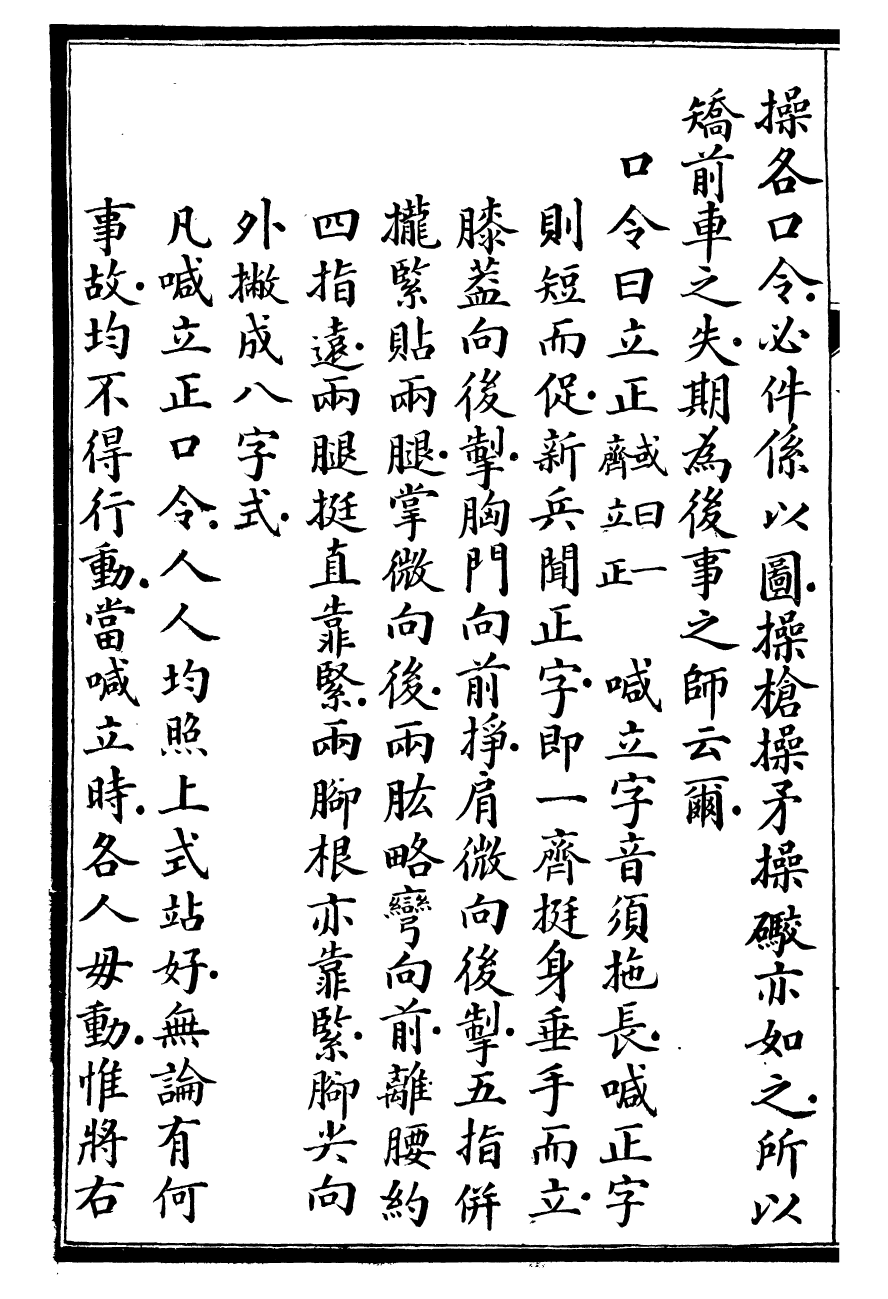 操各口令。必件係以圖。操槍操矛操礮亦如之。所以
矯前車之失。期為後事之師云爾。
口令曰立正 或曰一齊立正 喊立字音須拖長。喊正字
則短而促。新兵聞正字。即一齊挺身垂手而立。
膝蓋向後掣。胸門向前掙。肩微向後掣。五指併
攏緊貼兩腿。掌微向後。兩肱略彎向前。離腰約
四指遠。兩腿挺直靠緊。兩腳根亦靠緊。腳尖向
外撇成八字式。
凡喊立正口令。人人均照上式站好。無論有何
事故。均不得行動。當喊立時。各人毋動。惟將右